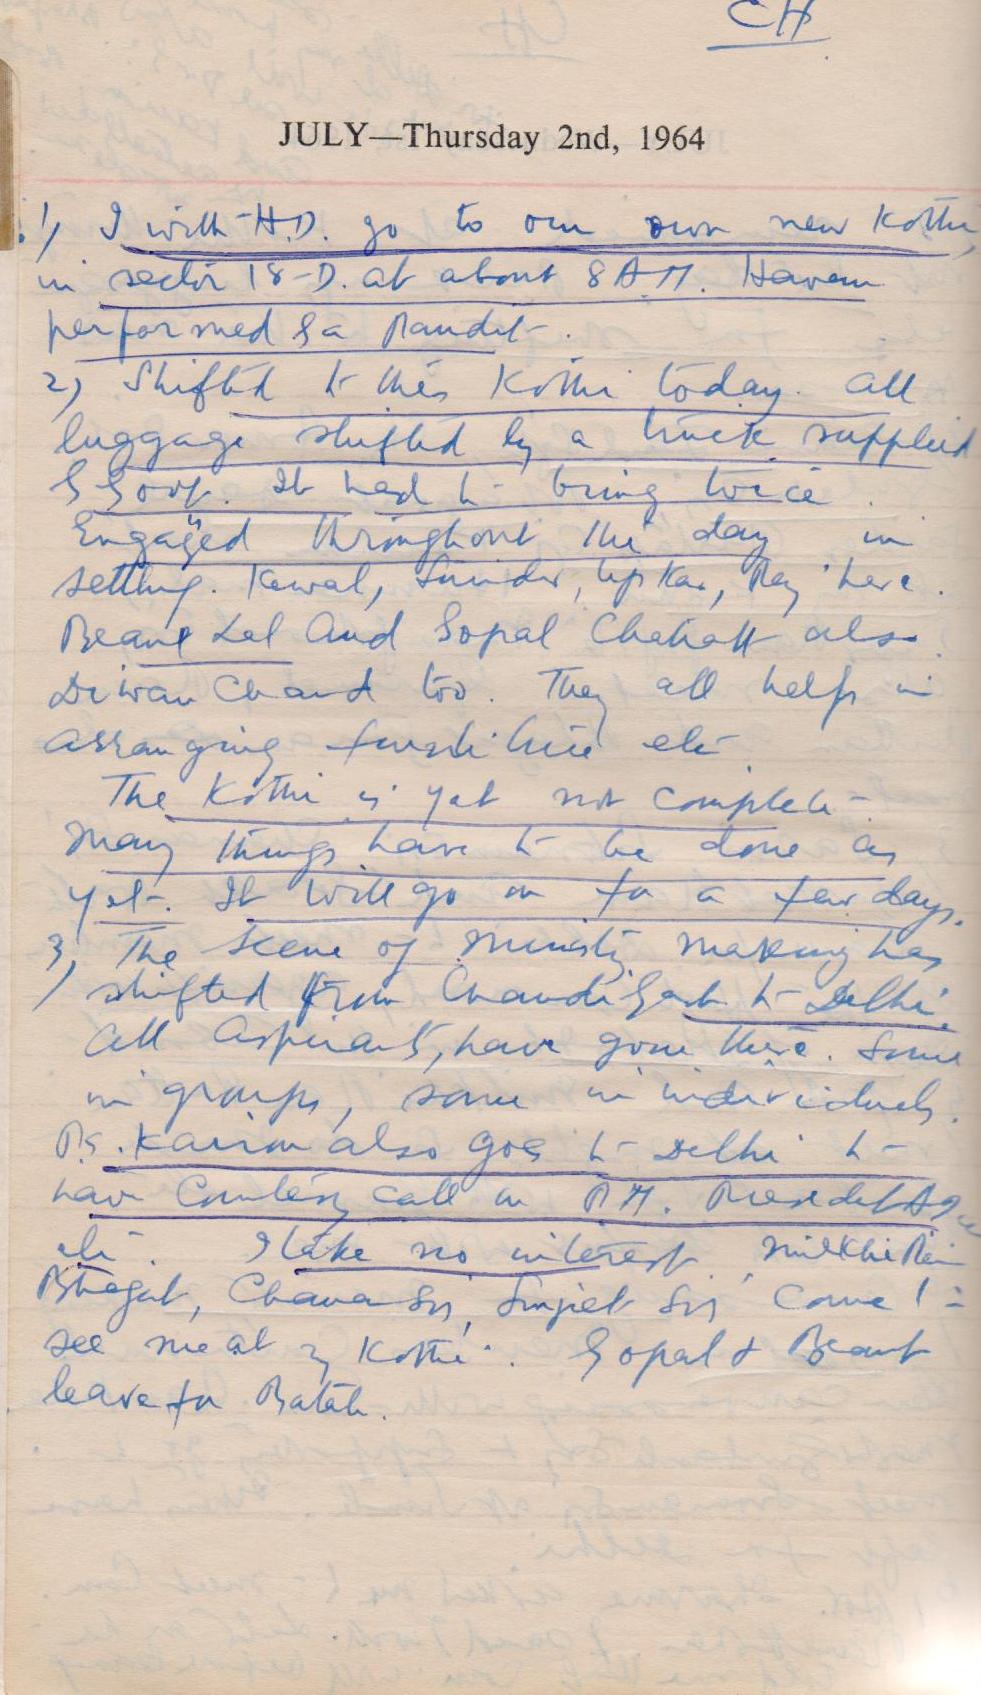 CH
JULY—Thursday 2nd, 1964
1) I with H.D. go to our own new Kothi,
in sector 18-D. at about 8 A.M. Havan
performed by a Pandit.
2) Shifted to this Kothi today. All
luggage shifted by a truck supplied
by Govt. It had to bring twice.
Engaged throughout the day in
setting. Kewal, Surinder, Upkar, Raj here.
Beant Lal And Gopal Chabatt also
Diwan Chand too. They all help in
arranging furniture etc.
The Kothi is yet not complete.
Many things have to be done as
yet. It will go on for a few days.
3) The scene of Ministry making has
shifted from Chandigarh to Delhi.
All Aspirants, have gone there. Some
in groups, some in individuals.
P.S. Kairon also goes to Delhi to
have Courtesy call on P.M. President
etc. I take no interest. Milkhi Ram
Bhagat, Chanan Singh, Surjeet Singh Come to
see me at my Kothi. Gopal & Beant
leave for Batala.